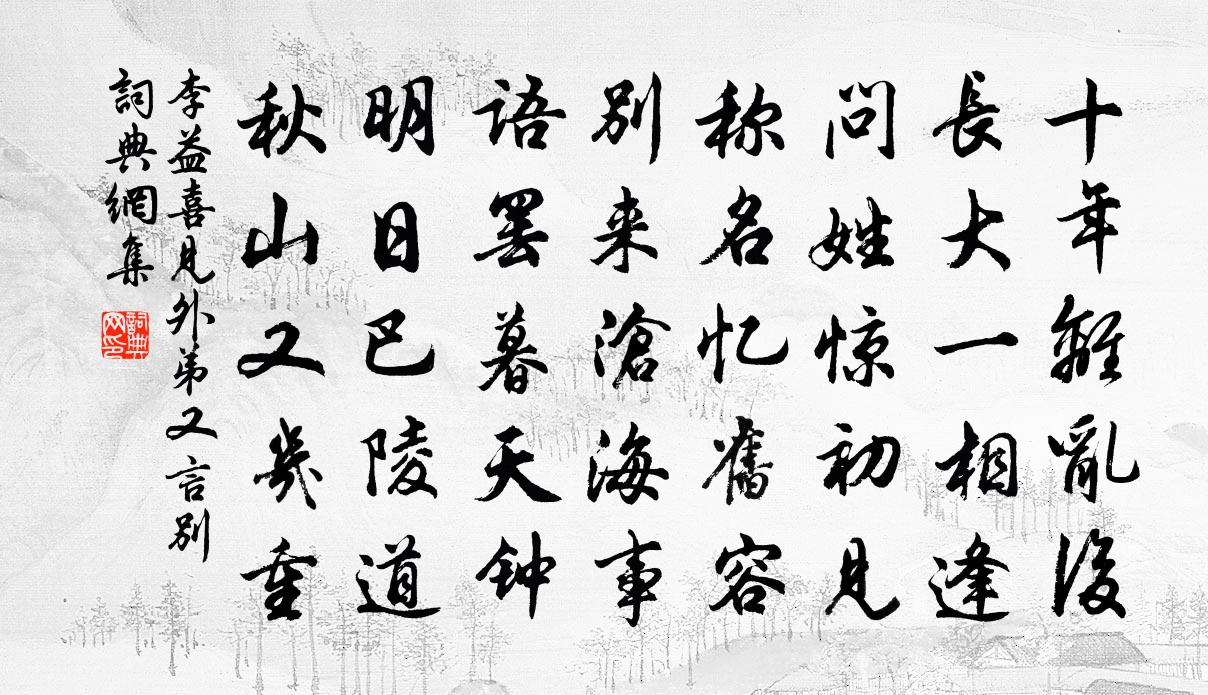 十年離亂後
長大一相逢
问姓惊初見
称名忆舊容
别来滄海事
语罢暮天钟
明日巴陵道
秋山又幾重
李益喜見外弟又言别
詞典網集
詞典网印